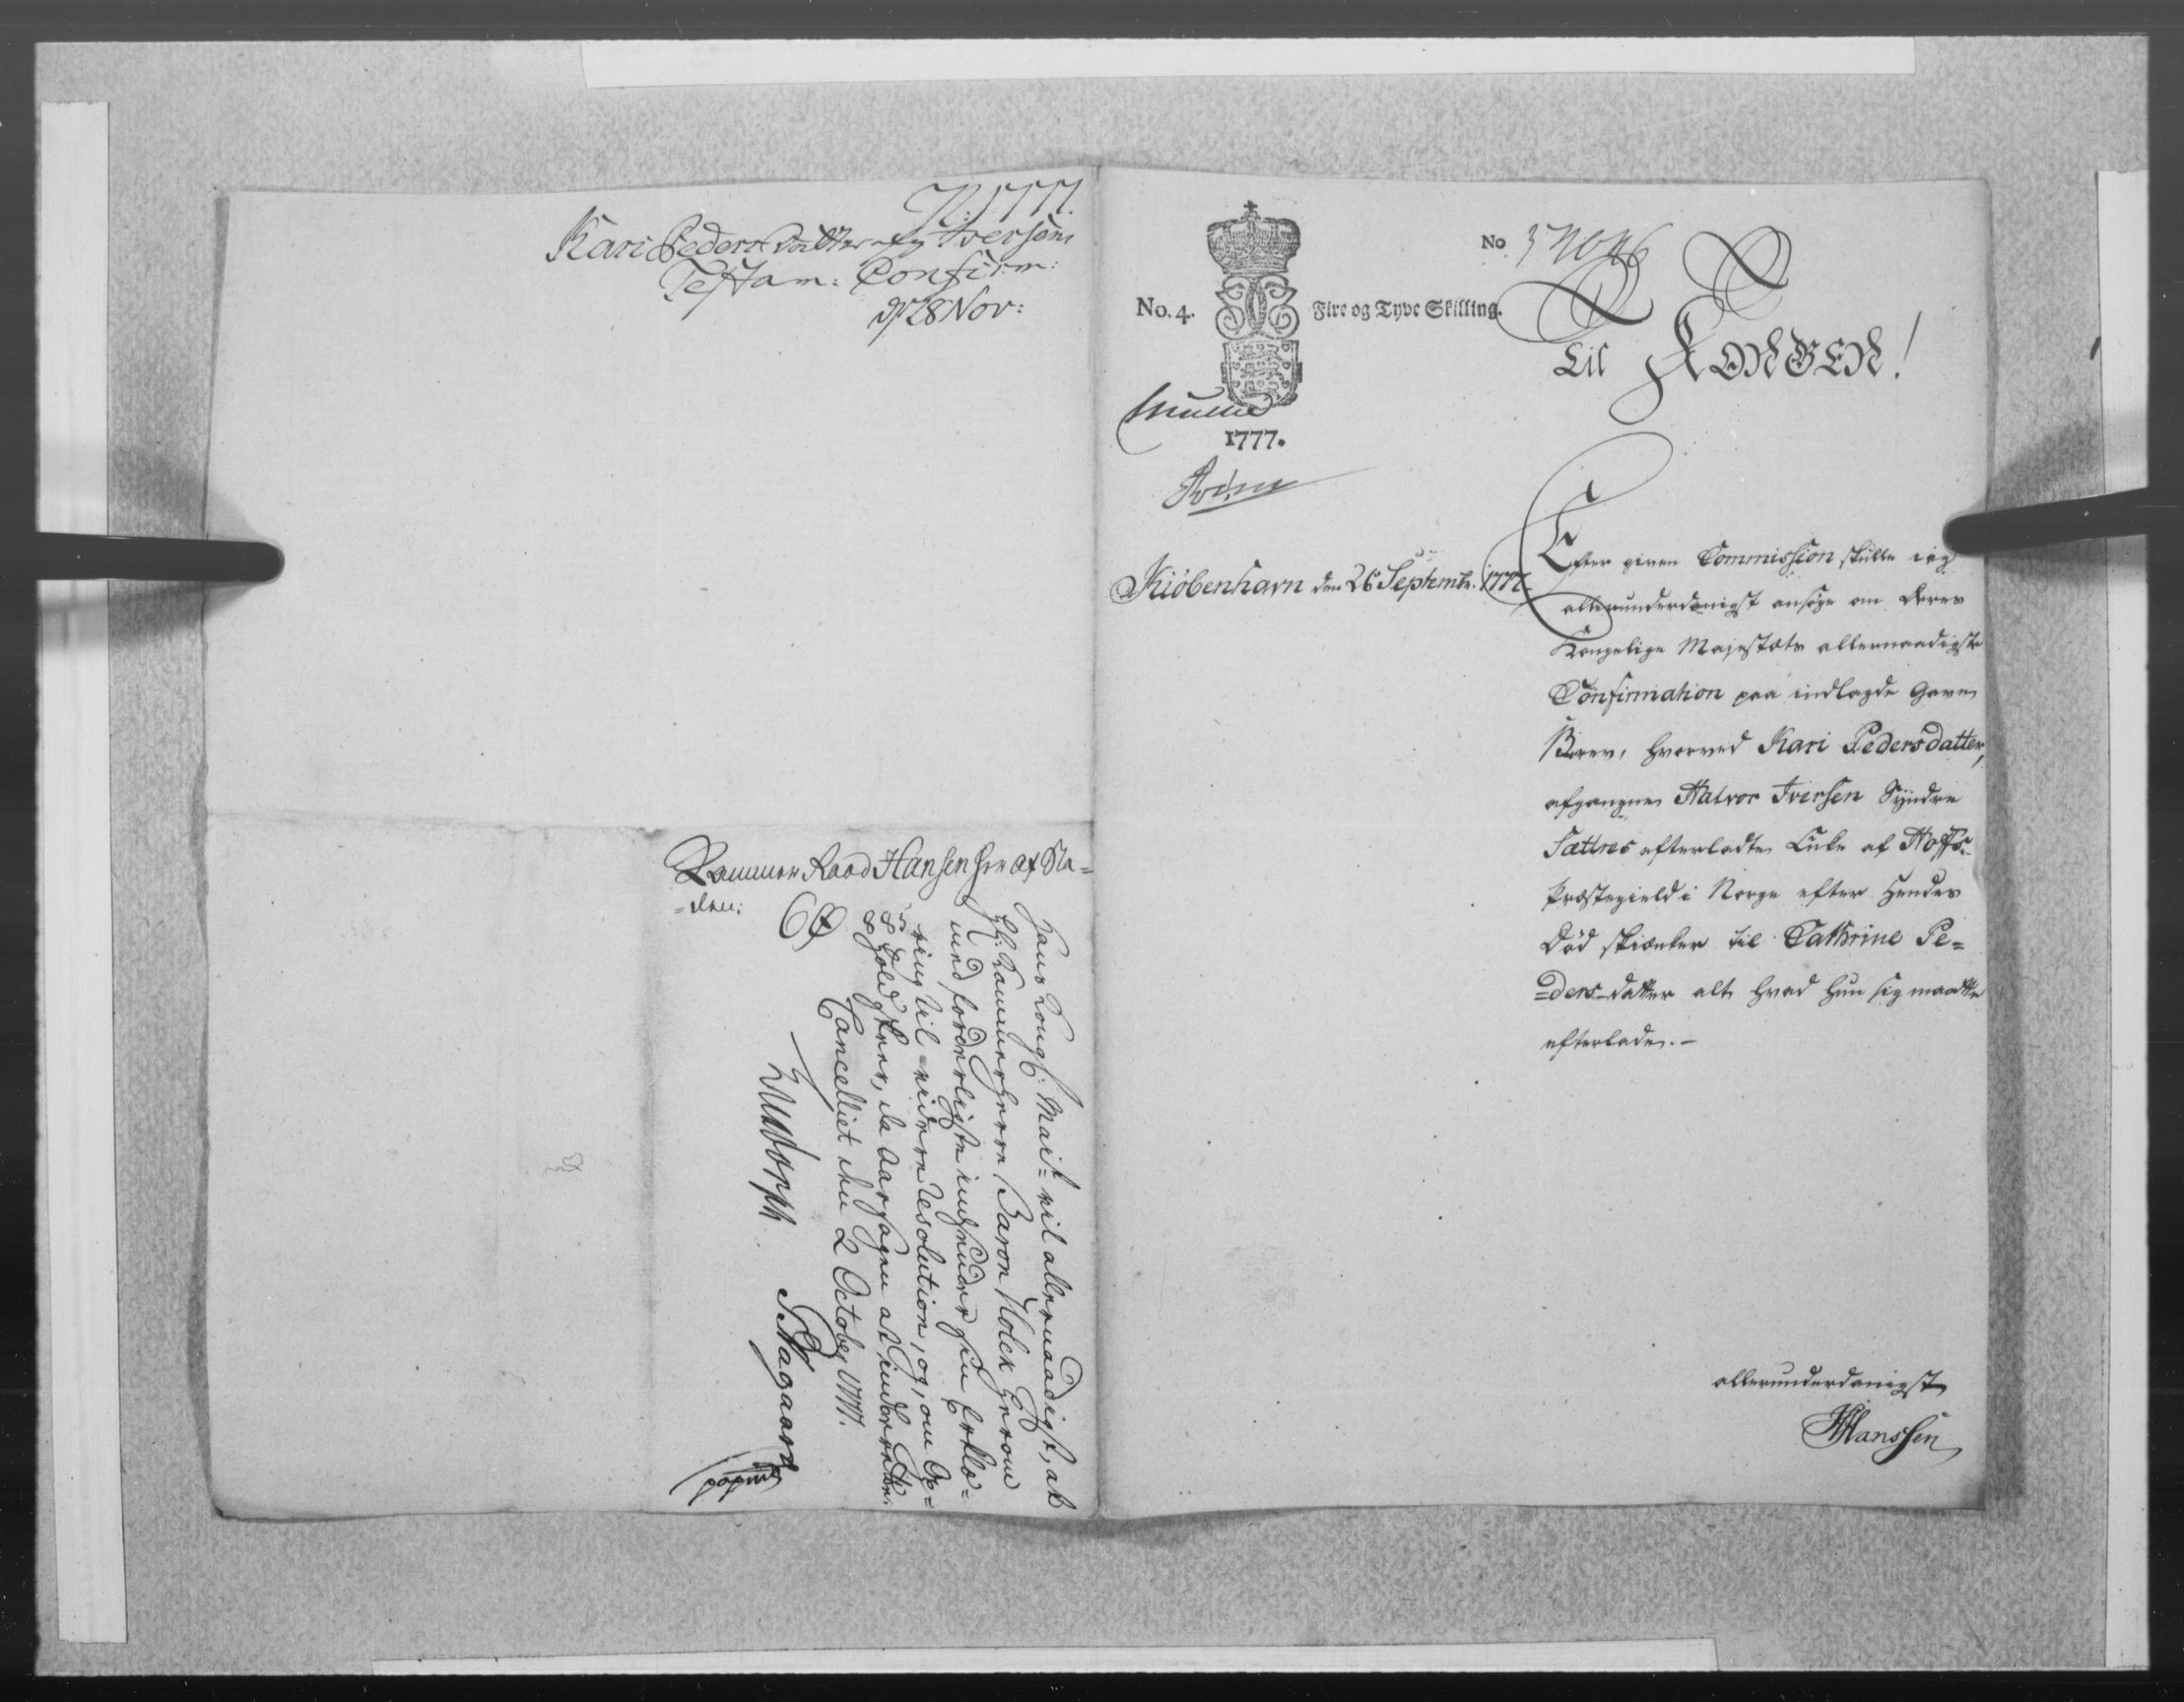 N: 1777.
Kari Pedersdatter afg Iversens
Testam: Confirm:
d 28 Nov:
Kammer Raad Hansen her af Sta-
=den:
Hans Kongl: Mait: vil allernaadigst, at
Hr: Kammerherre Baron Holck herom
med forderligste indsender sin Erklæ-
ring til videre Resolution, og, om Op-
hold skeer, da Aarsagen at indberette.
Cancelliet den 2 October 1777.
Aagaard
No. 4.
Fire og Tyve Skilling.
No.
1777.
Til KONGEN!
Kiöbenhavn den 26 Septembr. 1777.
Efter given Commission skulle ieg
allerunderdanigst ansøge om Deres
Kongelige Majestæts allernaadigste
Confirmation paa indlagde Gave
Brev, hvorved Kari Pedersdatter,
afgangne Halvor Iversen Syndre
Sættres efterladte Enke af Hoffs
Præstegield i Norge efter Hendes
Død skienker til Cathrine Pe-
=ders-datter alt hvad hun sig maatte
efterlade. -
allerunderdanigst
Hanssen